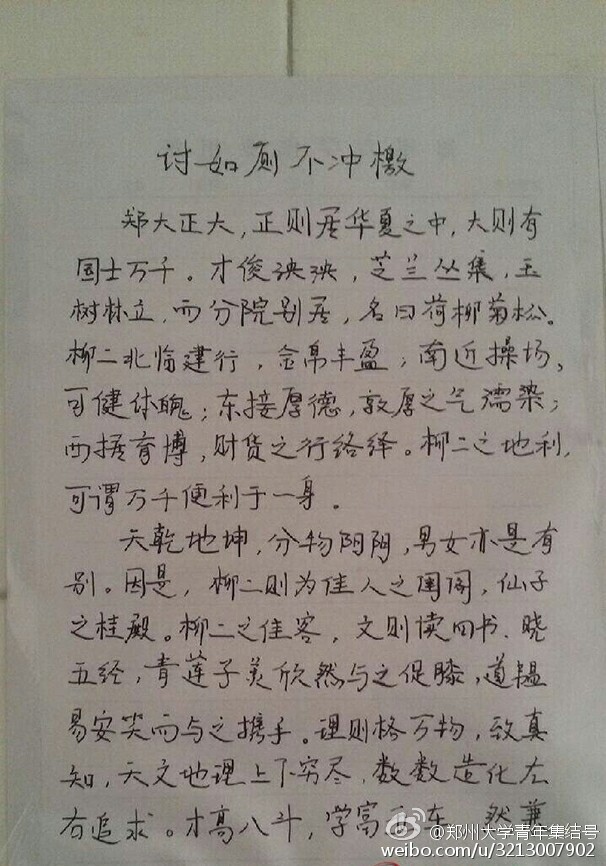 讨如厕不冲檄
郑大正大，正则居华夏之中，大则有
国士万千。才俊泱泱，芝兰丛集，玉
树林立，而分院别居，名曰荷柳菊松。
柳二北临建行，金帛丰盈；南近操场，
可健体魄；东接厚德，敦厚之气濡染；
西括育博，财货之行络绎。柳二之地利，
可谓万千便利于一身。
天乾地坤，分物阴阳，男女亦是有
别。因是，柳二则为佳人之闺阁，仙子
之桂殿。柳二之佳客，文则读四书、晓
五经，青莲子美欣然与之促膝，道韫
易安笑而与之携手。理则格万物，致真
知，天文地理上下穷尽，数数造化左
右追求。才高八斗，学富五车，然兼
@郑州大学青年集结号
weibo.com/u/3213007902